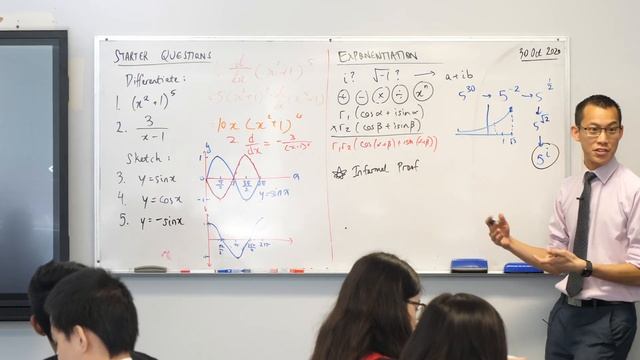 STARTER QUESTIONS
Differentiate:
1. (x² + 1)⁵
2. 3/(x-1)
Sketch:
3. y = sinx
4. y = cosx
5. y = -sinx
d/dx (x²+1)⁵
10x (x²+1)⁴
2. d/dx = -3/(x-1)²
y
1
-1
x
y = sinx
EXPONENTIATION
30 Oct 2020
i? √-1? → a+ib
+ - × ÷ xⁿ
r₁ (cosα + isinα)
× r₂ (cosβ + isinβ)
r₁r₂ (cos(α+β) + isin(α+β))
☆ Informal Proof
5³⁰ → 5⁻² → 5^½
5^√2
5ⁱ
1 √3